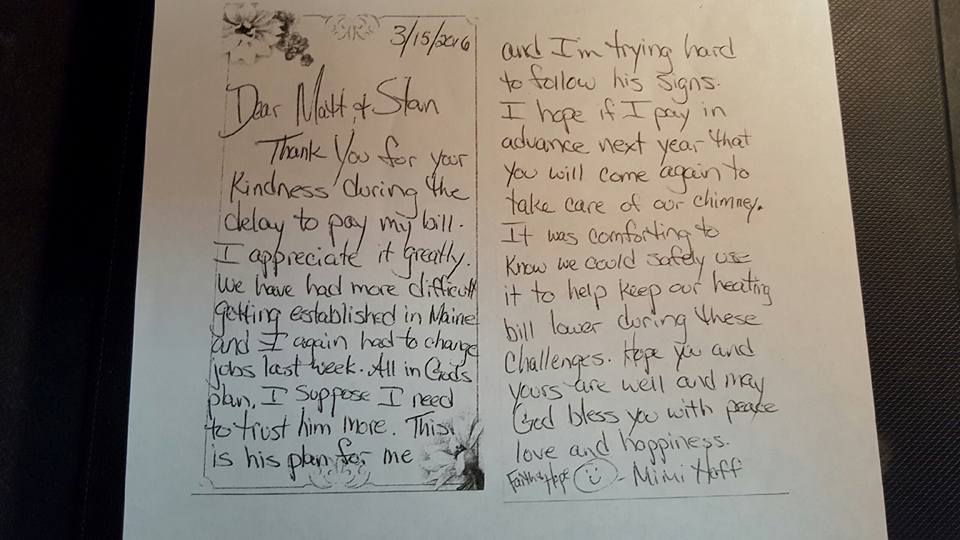 3/15/2016
Dear Matt & Stan
Thank You for your
Kindness during the
delay to pay my bill.
I appreciate it greatly.
We have had more difficult
getting established in Maine
and I again had to change
jobs last week. All in God's
plan. I suppose I need
to trust him more. This
is his plan for me
and I'm trying hard
to follow his signs.
I hope if I pay in
advance next year that
you will come again to
take care of our chimney.
It was comforting to
Know we could safely use
it to help keep our heating
bill lower during these
challenges. Hope you and
yours are well and may
God bless you with peace
love and happiness.
Faith & Hope ☺ - Mimi Hoff